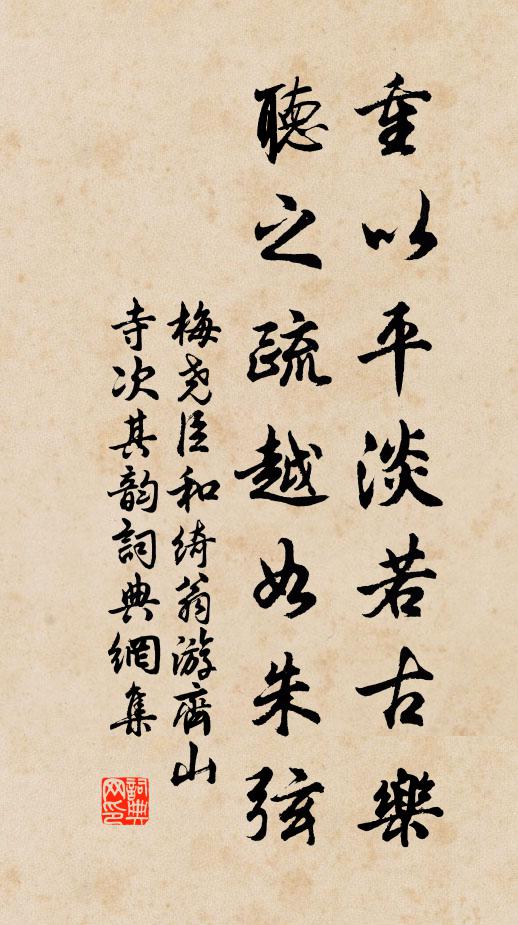 重以平淡若古樂
聽之疏越如朱弦
梅堯臣和綺翁游齊山
寺次其韵詞典網集
詞典
网印